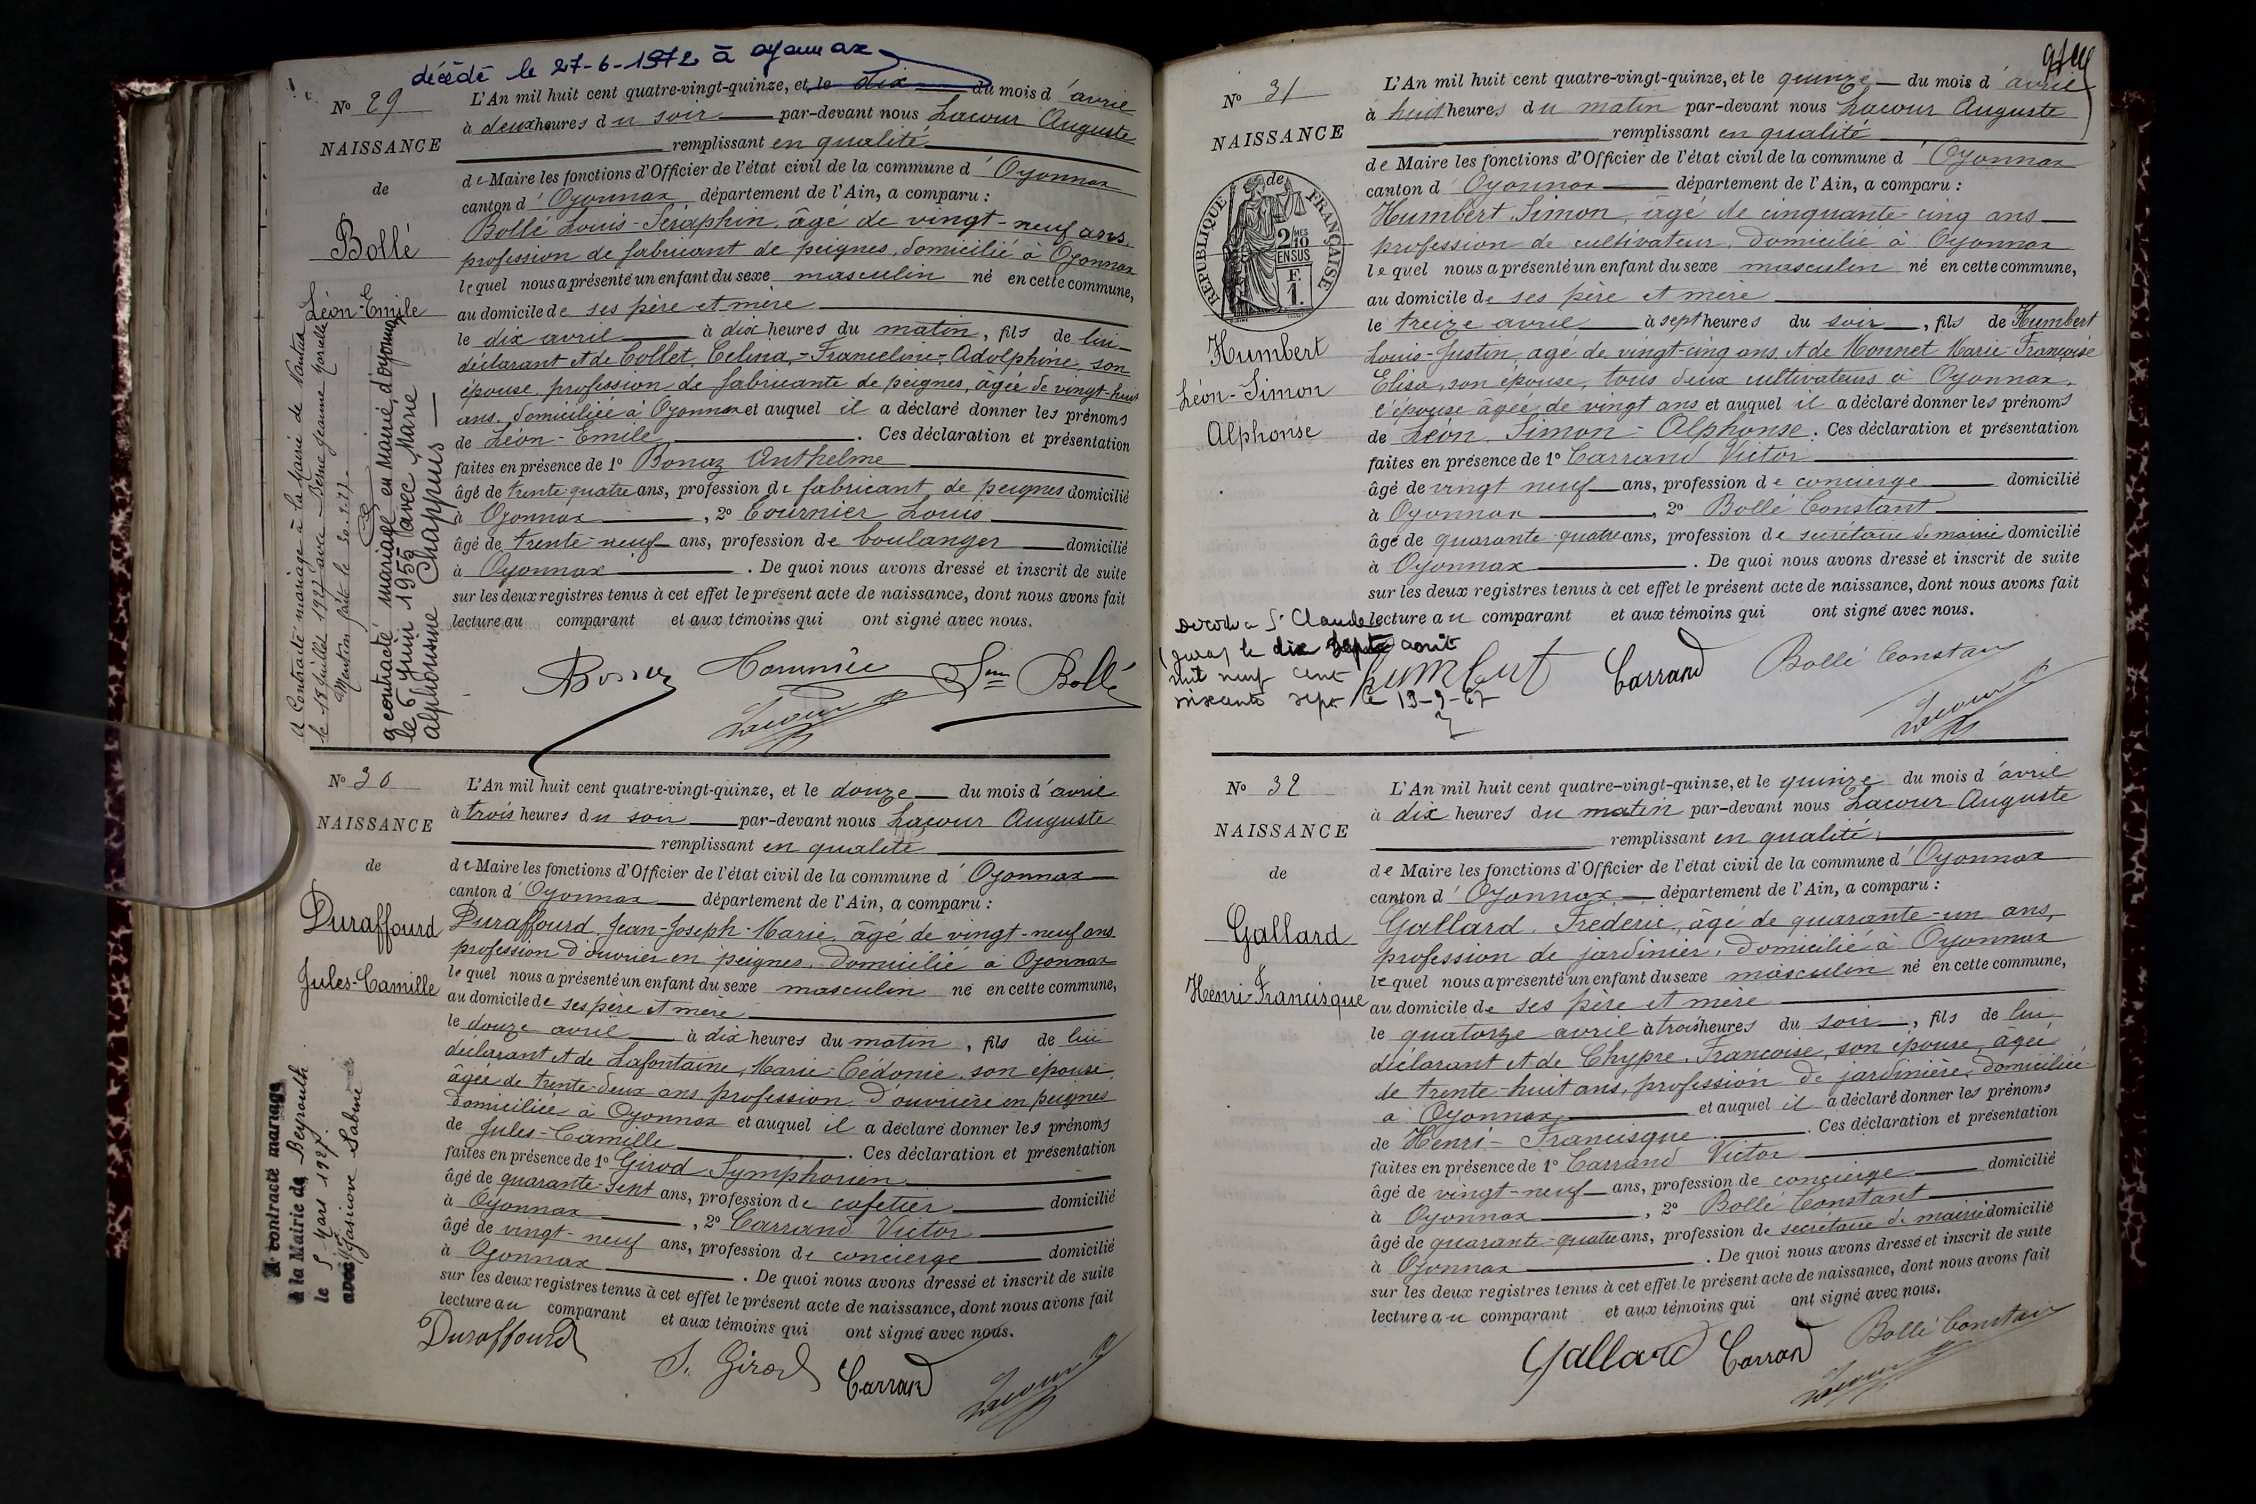 décédé le 27-6-1972 à Oyonnax
No 29
NAISSANCE
de
Bollé
Léon-Emile
L'An mil huit cent quatre-vingt-quinze, et le dix du mois d'avril
à deux heures du soir par-devant nous Lacour Auguste
remplissant en qualité
de Maire les fonctions d'Officier de l'état civil de la commune d'Oyonnax
canton d'Oyonnax département de l'Ain, a comparu :
Bollé Louis-Séraphin, âgé de vingt-neuf ans,
profession de fabricant de peignes, domicilié à Oyonnax
lequel nous a présenté un enfant du sexe masculin né en cette commune,
au domicile de ses père et mère
le dix avril à dix heures du matin, fils de lui
déclarant et de Collet, Celina-Franceline-Adolphine, son
épouse, profession de fabricante de peignes, âgée de vingt-huit
ans, domiciliée à Oyonnax et auquel il a déclaré donner les prénoms
de Léon-Emile. Ces déclaration et présentation
faites en présence de 1o Bonaz Anthelme
âgé de trente quatre ans, profession de fabricant de peignes domicilié
à Oyonnax, 2o Cournier Louis
âgé de trente-neuf ans, profession de boulanger domicilié
à Oyonnax. De quoi nous avons dressé et inscrit de suite
sur les deux registres tenus à cet effet le présent acte de naissance, dont nous avons fait
lecture au comparant et aux témoins qui ont signé avec nous.
A Contracté mariage à la Mairie de Nantua
le 18 juillet 1927 avec Berne Jeanne
Mention faite le 20.7.27.
a contracté mariage en mairie d'oyonnax
le 6 juin 1955 avec Marie
alphonsine Chappuis
ABonaz Sin Bollé
Lacour
No 30
NAISSANCE
de
Duraffourd
Jules-Camille
L'An mil huit cent quatre-vingt-quinze, et le douze du mois d'avril
à trois heures du soir par-devant nous Lacour Auguste
remplissant en qualité
de Maire les fonctions d'Officier de l'état civil de la commune d'Oyonnax
canton d'Oyonnax département de l'Ain, a comparu :
Duraffourd, Jean-Joseph-Marie, âgé de vingt-neuf ans
profession d'ouvrier en peignes, domicilié à Oyonnax
lequel nous a présenté un enfant du sexe masculin né en cette commune,
au domicile de ses père et mère
le douze avril à dix heures du matin, fils de lui
déclarant et de Lafontaine, Marie-Cédonie, son épouse,
âgée de trente-deux ans, profession d'ouvrière en peignes
domiciliée à Oyonnax et auquel il a déclaré donner les prénoms
de Jules-Camille. Ces déclaration et présentation
faites en présence de 1o Girod Symphorien
âgé de quarante-sept ans, profession de cafetier domicilié
à Oyonnax, 2o Carrand Victor
âgé de vingt-neuf ans, profession de concierge domicilié
à Oyonnax. De quoi nous avons dressé et inscrit de suite
sur les deux registres tenus à cet effet le présent acte de naissance, dont nous avons fait
lecture au comparant et aux témoins qui ont signé avec nous.
A contracté mariage
à la Mairie de Beyrouth
le 5 Mars 1927.
avec
Duraffourd
S. Girod Carrand Lacour
No 31
NAISSANCE
de
RÉPUBLIQUE FRANÇAISE
2/10MES
EN SUS
F.
1.
Humbert
Léon-Simon
Alphonse
L'An mil huit cent quatre-vingt-quinze, et le quinze du mois d'avril
à huit heures du matin par-devant nous Lacour Auguste
remplissant en qualité
de Maire les fonctions d'Officier de l'état civil de la commune d'Oyonnax
canton d'Oyonnax département de l'Ain, a comparu :
Humbert, Simon, âgé de cinquante-cinq ans
profession de cultivateur, domicilié à Oyonnax
lequel nous a présenté un enfant du sexe masculin né en cette commune,
au domicile de ses père et mère
le treize avril à sept heures du soir, fils de Humbert
Louis-Justin, âgé de vingt-cinq ans et de Monnet Marie-Françoise
Elisa, son épouse, tous deux cultivateurs à Oyonnax,
l'épouse âgée de vingt ans et auquel il a déclaré donner les prénoms
de Léon-Simon-Alphonse. Ces déclaration et présentation
faites en présence de 1o Carrand Victor
âgé de vingt neuf ans, profession de concierge domicilié
à Oyonnax, 2o Bollé Constant
âgé de quarante-quatre ans, profession de secrétaire de mairie domicilié
à Oyonnax. De quoi nous avons dressé et inscrit de suite
sur les deux registres tenus à cet effet le présent acte de naissance, dont nous avons fait
lecture au comparant et aux témoins qui ont signé avec nous.
Décédé à St Claude
(Jura) le dix sept août
mil neuf cent
soixante sept le 13-9-67
Humbert Carrand Bollé Constant
Lacour
No 32
NAISSANCE
de
Gallard
Henri-Francisque
L'An mil huit cent quatre-vingt-quinze, et le quinze du mois d'avril
à dix heures du matin par-devant nous Lacour Auguste
remplissant en qualité
de Maire les fonctions d'Officier de l'état civil de la commune d'Oyonnax
canton d'Oyonnax département de l'Ain, a comparu :
Gallard, Frédéric, âgé de quarante-un ans,
profession de jardinier, domicilié à Oyonnax
lequel nous a présenté un enfant du sexe masculin né en cette commune,
au domicile de ses père et mère
le quatorze avril à trois heures du soir, fils de lui
déclarant et de Chypre, Françoise, son épouse, âgée
de trente-huit ans, profession de jardinière, domiciliée
à Oyonnax, et auquel il a déclaré donner les prénoms
de Henri-Francisque. Ces déclaration et présentation
faites en présence de 1o Carrand Victor
âgé de vingt-neuf ans, profession de concierge domicilié
à Oyonnax, 2o Bollé Constant
âgé de quarante-quatre ans, profession de secrétaire de mairie domicilié
à Oyonnax. De quoi nous avons dressé et inscrit de suite
sur les deux registres tenus à cet effet le présent acte de naissance, dont nous avons fait
lecture au comparant et aux témoins qui ont signé avec nous.
Gallard Carrand Bollé Constant
Lacour